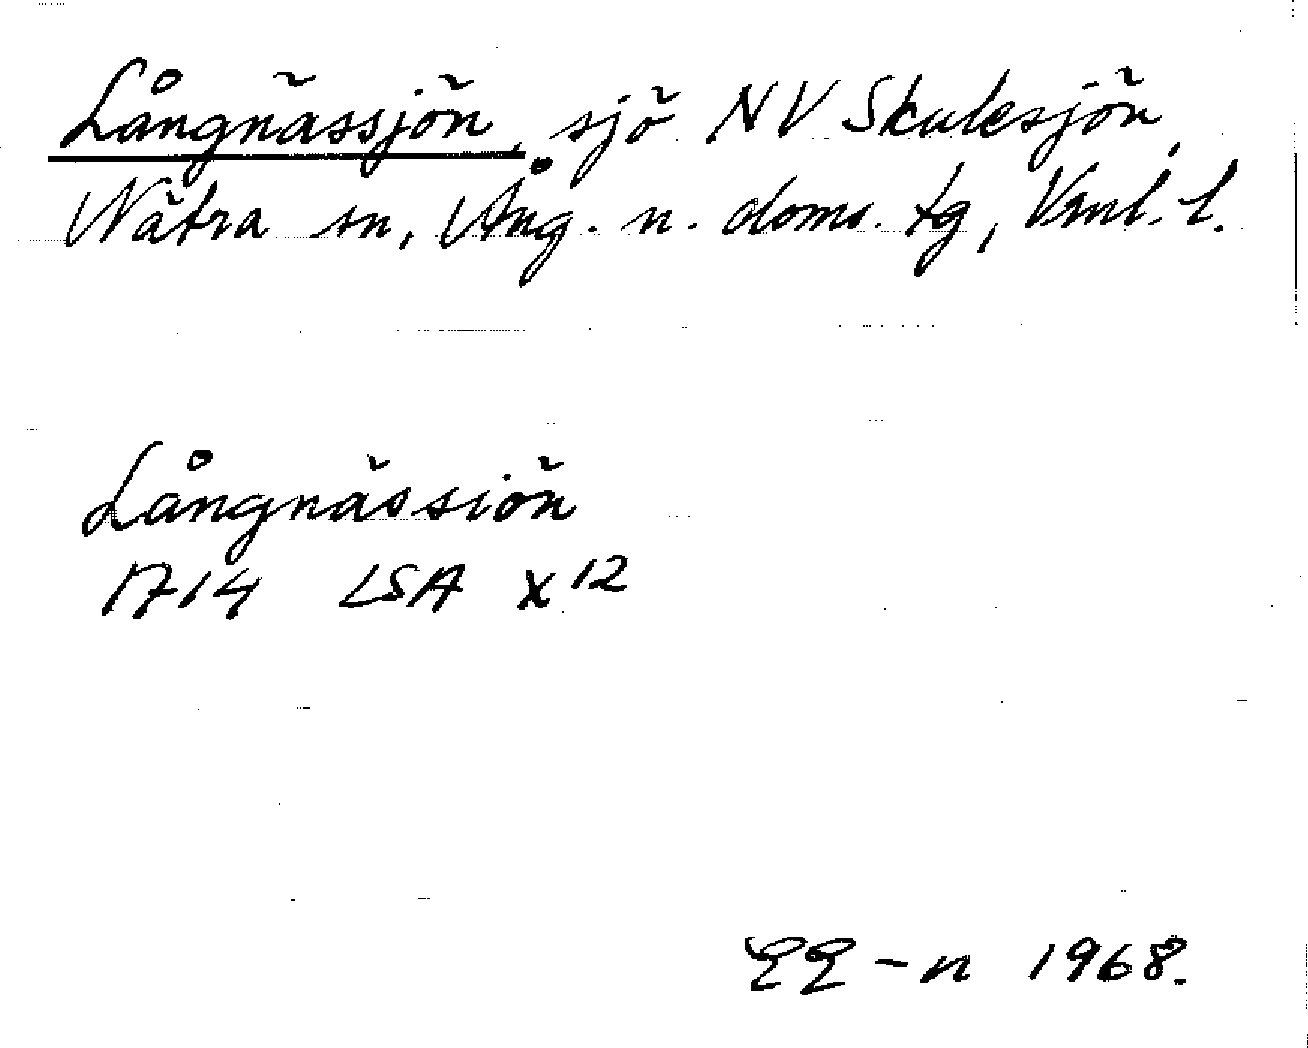 Långnässjön, sjö NV Skulesjön,
Nätra sn, Ång. n. doms. tg, Vnl. l.
Långnässiön
1714 LSA X 12
EE-n 1968.